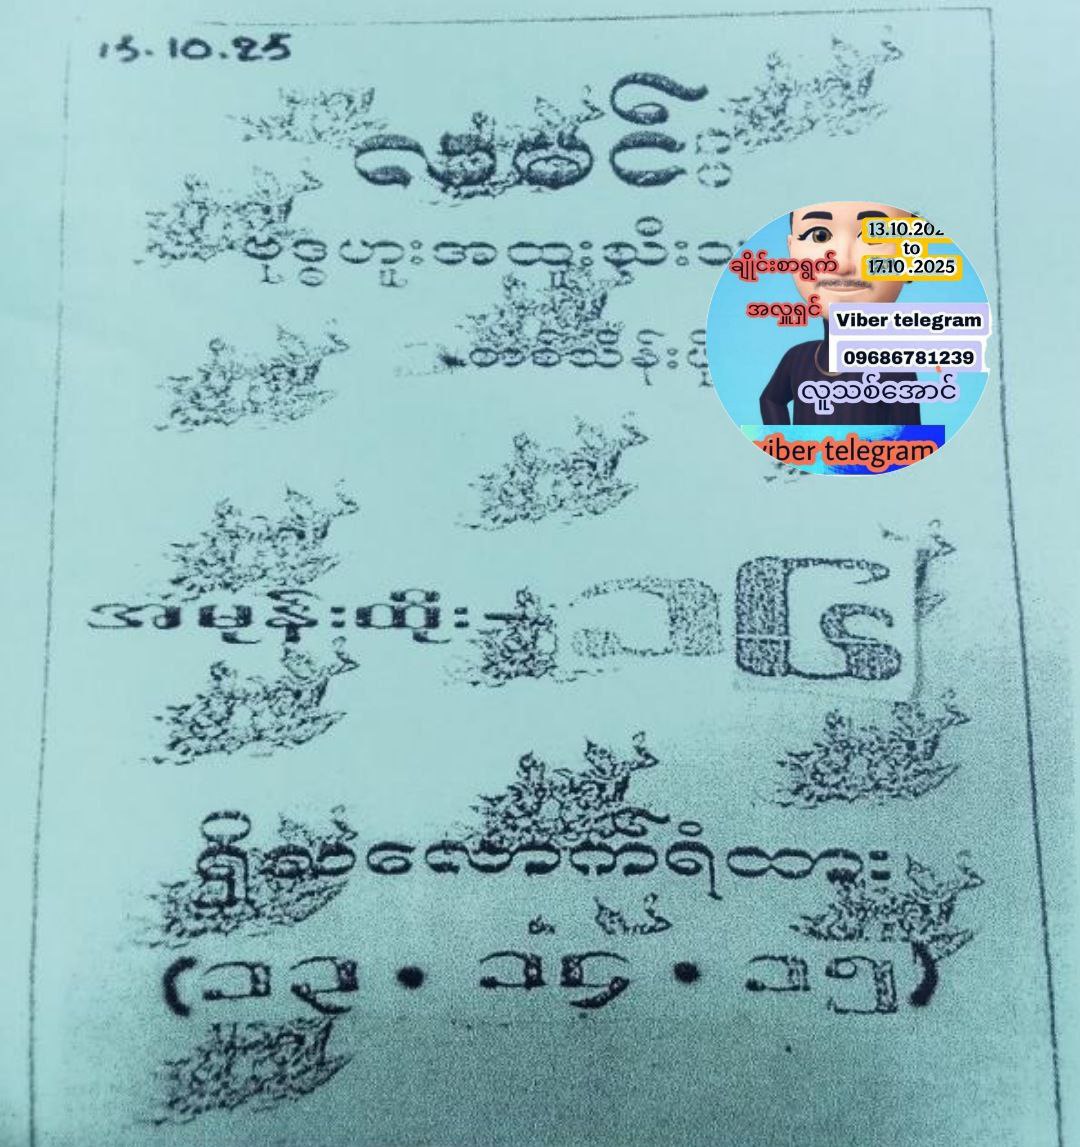 13.10.25
လမင်း
ဗုဒ္ဓဟူးအထူးသီးသ
တစ်သိန်းပို
13.10.202
to
17.10.2025
ချိုင်းစာရွက်
အလှူရှင်
Viber telegram
09686781239
လူသစ်အောင်
viber telegram
အမုန်းထိုး - ၁၄
ရှိသလောက်ရံထား
(၁၃ • ၁၄ • ၁၅)